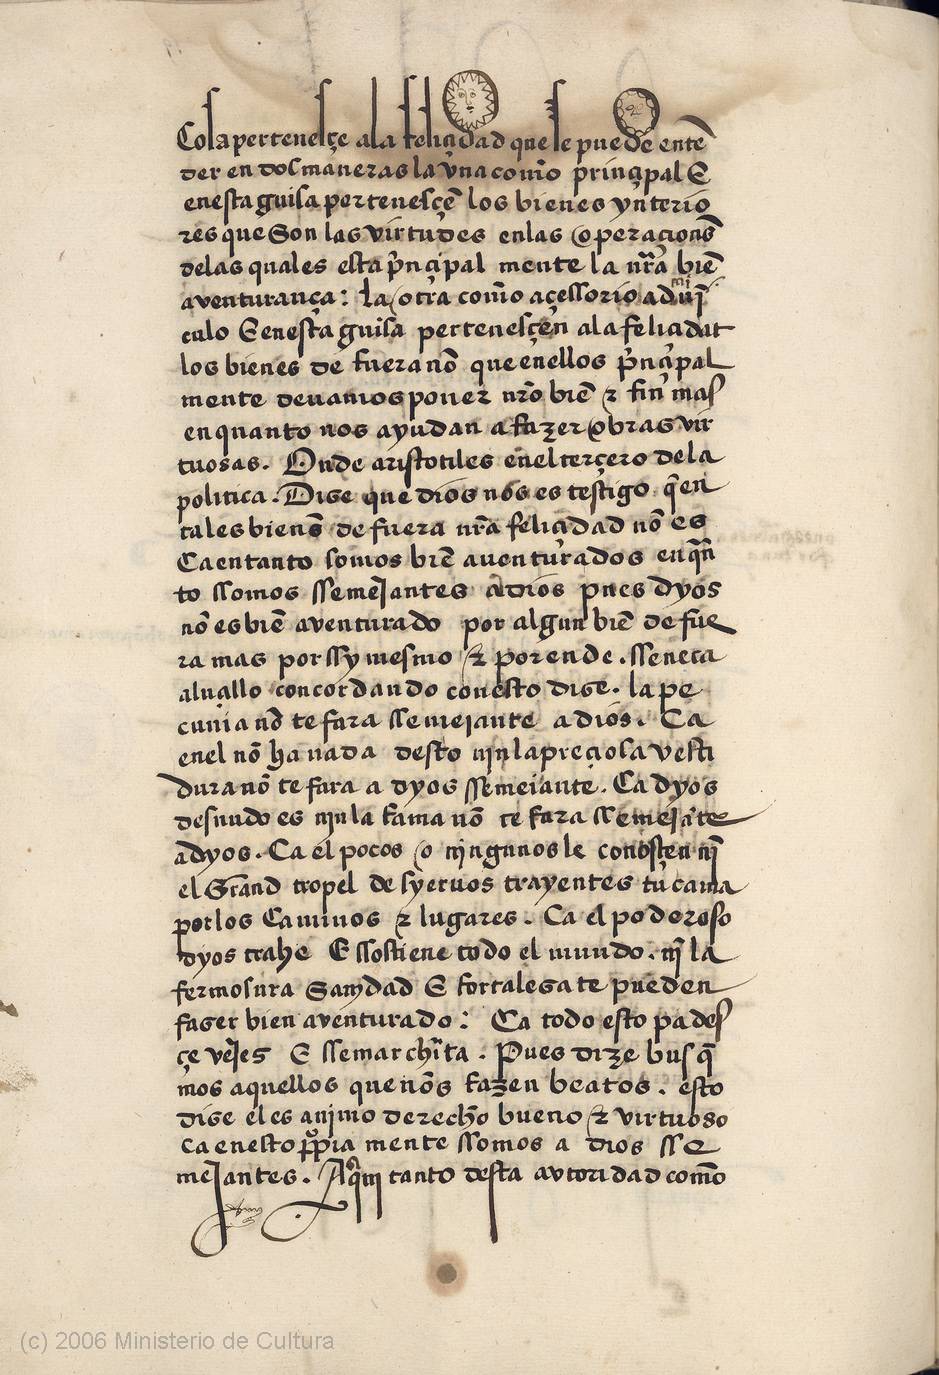 Cosa pertenesçe a la feliçidad que se puede entē
der en dos maneras la vna com̃o prinçipal E
en esta guisa pertenesçē los bienes ynterio
res que Son las virtudes en las operaçionēs
de las quales esta p̃nçipal mente la nr̃a biē
auenturança: la otra com̃o açessorio adminī
culo E en esta guisa pertenesçen a la feliçidat
los bienes de fuera nō que en ellos p̃nçipal
mente deuamos poner nr̃o biē & fin mas
en quanto nos ayudan a fazer obras vir
tuosas. Onde aristotiles en el terçero de la
politica. Dise que dios nos es testigo q̄ en
tales bienēs de fuera nr̃a feliçidad nō es
Ca entanto somos biē auenturados en quā
to ssomos ssemejantes a dios pues dyos
nō es biē auenturado por algun biē de fue
ra mas por ssy mesmo & por ende. sseneca
a luçillo concordando con esto dise. la pe
cunia nō te fara ssemejante a dios. Ca
en el nō ha nada desto nin la preçiosa vesti
dura nō te fara a dyos ssemejante. Ca dyos
desnudo es nin la fama nō te fara ssemejāte
a dyos. Ca el pocos o ningunos le conosçen nī
el Grand tropel de syeruos trayentes tu cama
por los Caminos & lugares. Ca el poderoso
dyos trahe E ssostiene todo el mundo. nī la
fermosura Sanidad E fortalesa te pueden
faser bien auenturado: Ca todo esto pades
çe vejes E sse marchita. Pues dize busq̄
mos aquellos que nōs fazen beatos. esto
dise el es animo derecho bueno & virtuoso
ca en esto ꝓpia mente ssomos a dios sse
mejantes. Aq̄ni tanto desta autoridad com̃o
(c) 2006 Ministerio de Cultura